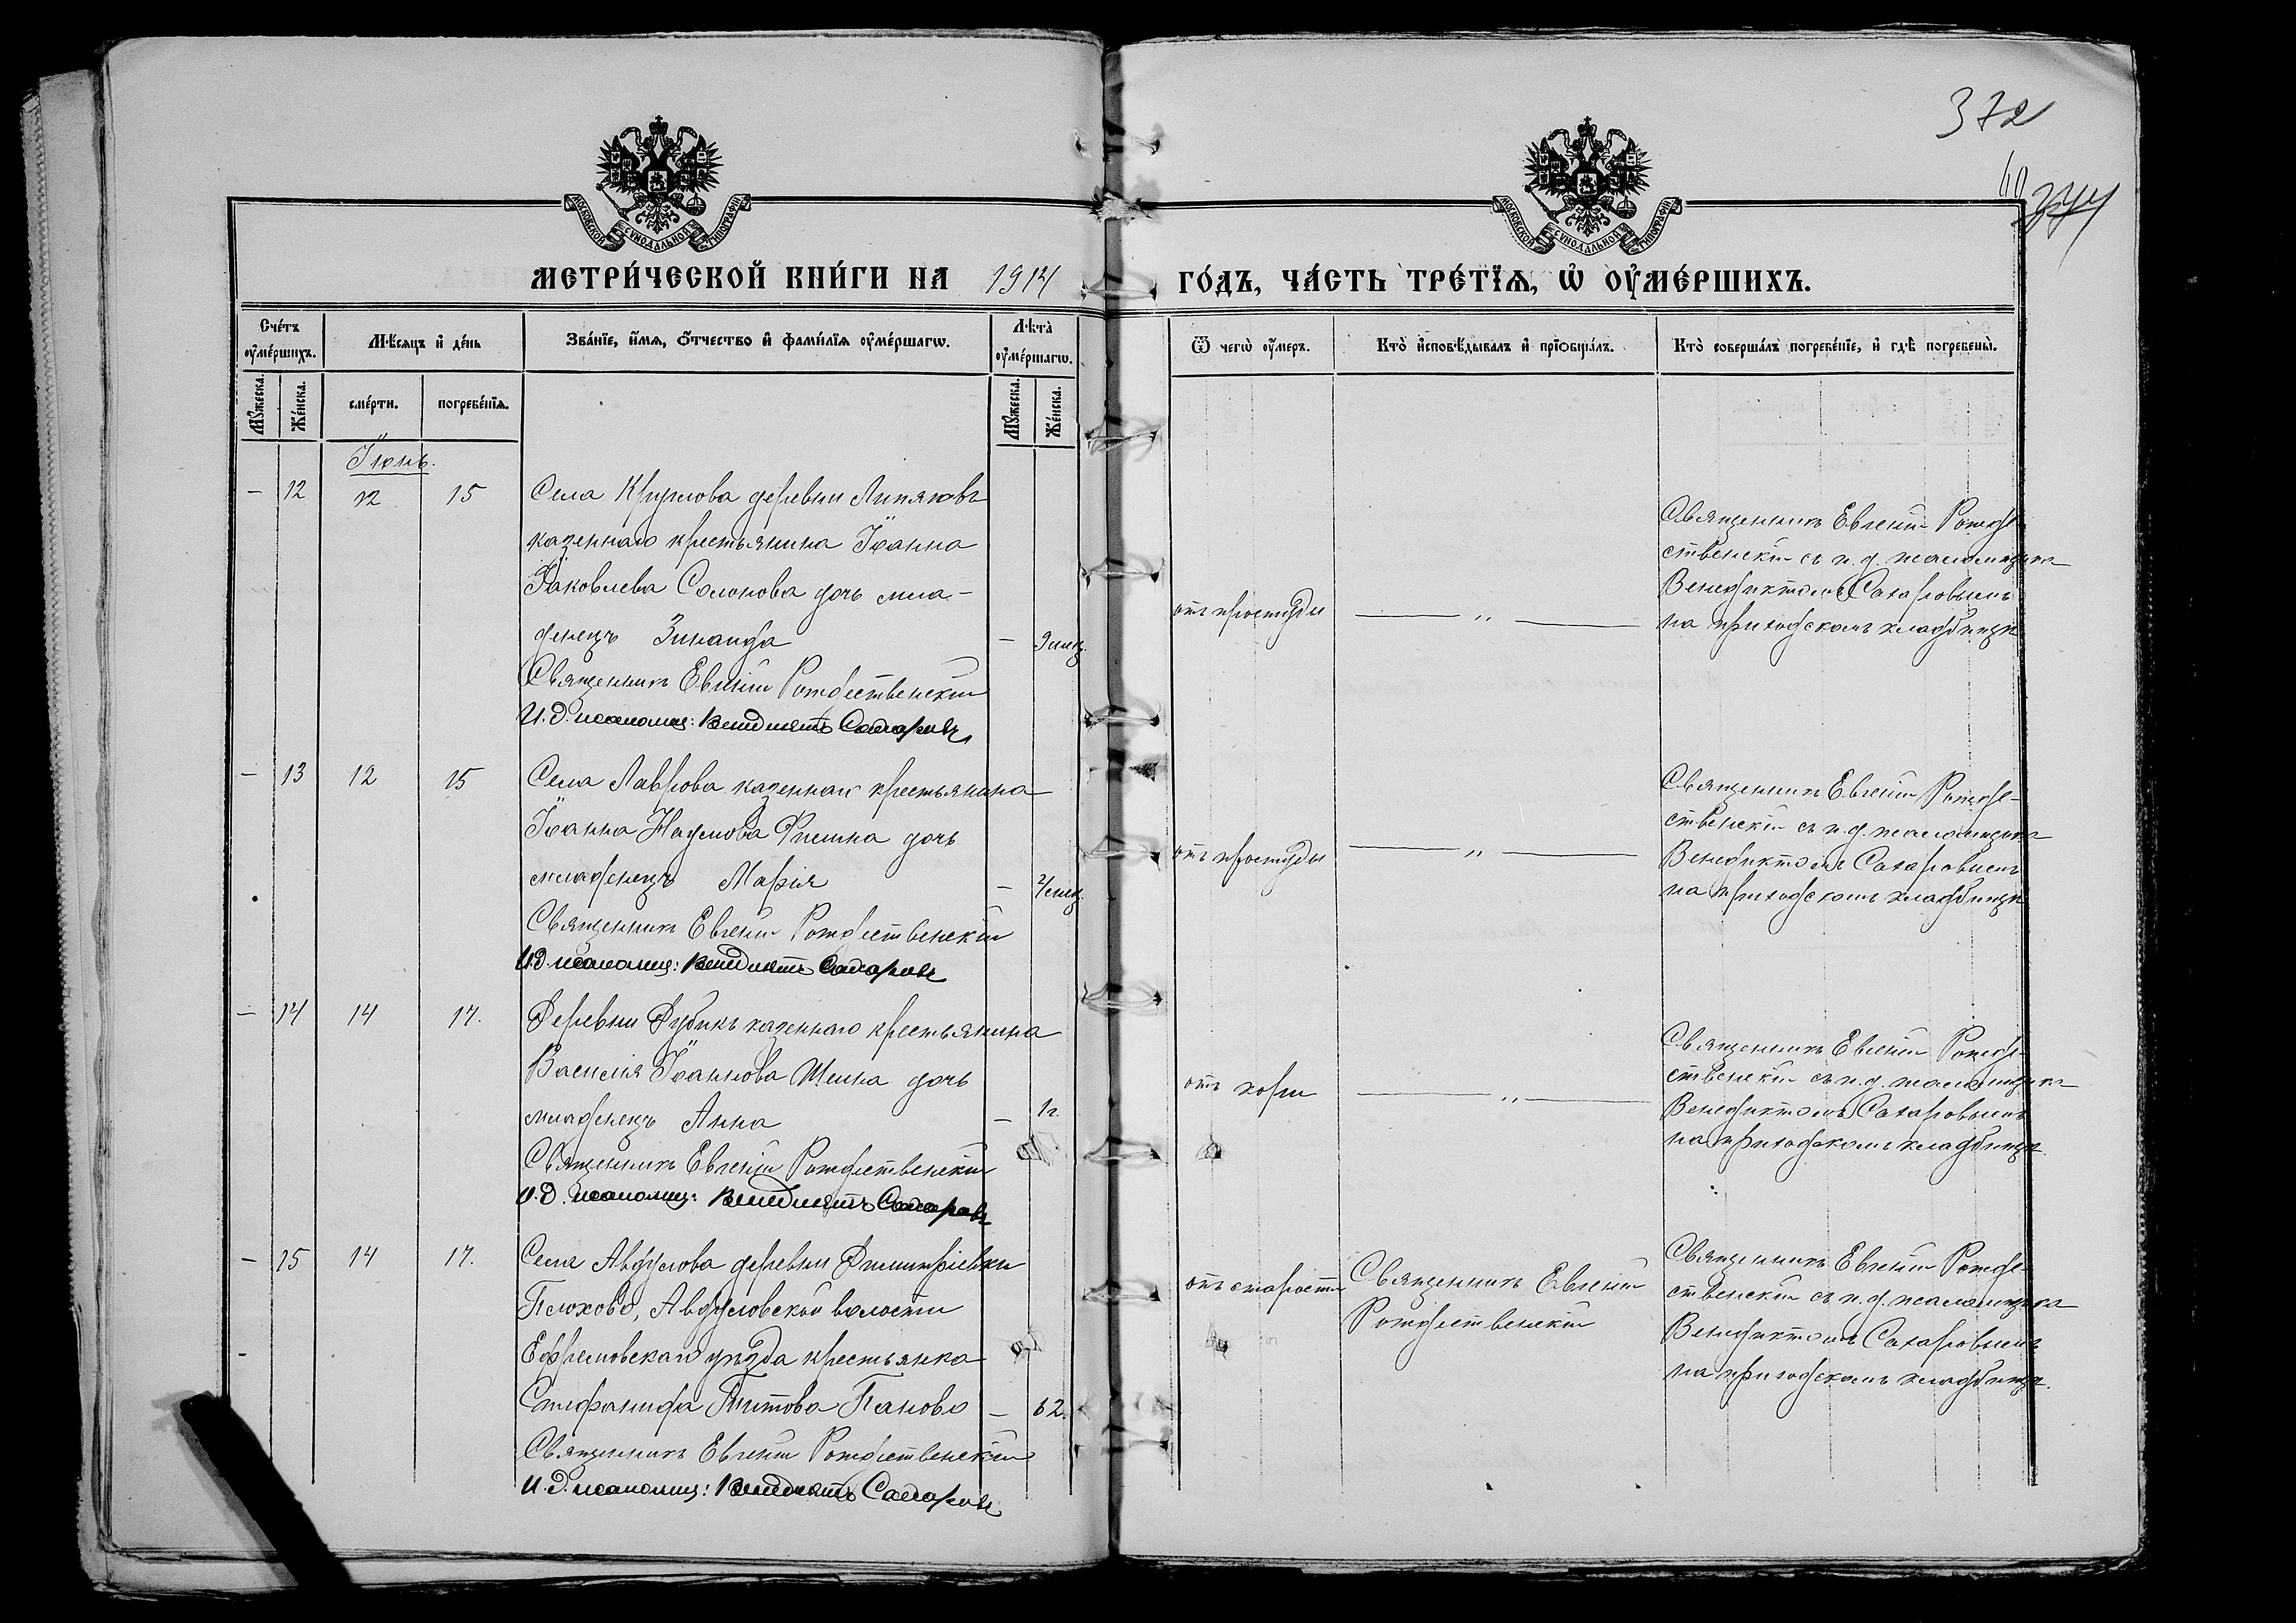 372
40
344
МОСКОВСКОЙ СУНОДАЛЬНОЙ ТИПОГРАФІИ
МОСКОВСКОЙ СУНОДАЛЬНОЙ ТИПОГРАФІИ
МЕТРИ́ЧЕСКОЙ КНИ́ГИ НА 1914 ГО́ДЪ, ЧА́СТЬ ТРЕ́ТІѦ, Ѡ҆ ОУ҆МЕ́РШИХЪ.
Сче́тъ оу҆ме́ршихъ.
Мѣ́сяцъ и҆ де́нь
Зва́нїе, и҆́мѧ, ѻ҆́тчество и҆ фамилїѧ оу҆ме́ршагѡ.
Лѣ́та̀ оу҆ме́ршагѡ.
Ѿ чегѡ̀ оу҆́меръ.
Кто̀ и҆сповѣ́дывалъ и҆ прїѻбща́лъ.
Кто̀ соверша́лъ погребе́нїе, и҆ гдѣ̀ погребены̀.
Мꙋ́жеска.
Же́нска.
сме́рти.
погребе́нїѧ.
Мꙋ́жеска.
Же́нска.
Іюнь.
– 12 12 15 Села Круглова деревни Липяговъ
казеннаго крестьянина Іоанна
Іаковлева Солопова дочь мла-
денецъ Зинаида – 9 мѣс.
Священникъ Евгеній Рождественскій
И. д. псаломщ: Венедиктъ Сахаровъ
отъ простуды
— „ —
Священникъ Евгеній Рожде-
ственскій съ и. д. псаломщика
Венедиктомъ Сахаровымъ
на приходскомъ кладбищѣ
– 13 12 15 Села Лаврова казеннаго крестьянина
Іоанна Наумова дочь
младенецъ Марія – мѣс.
Священникъ Евгеній Рождественскій
И. д. псаломщ: Венедиктъ Сахаровъ
отъ простуды
— „ —
Священникъ Евгеній Рожде-
ственскій съ и. д. псаломщика
Венедиктомъ Сахаровымъ
на приходскомъ кладбищѣ
– 14 14 17. Деревни Дубикъ казеннаго крестьянина
Василія Іоаннова дочь
младенецъ Анна – 1 г.
Священникъ Евгеній Рождественскій
И. д. псаломщ: Венедиктъ Сахаровъ
отъ кори
— „ —
Священникъ Евгеній Рожде-
ственскій съ и. д. псаломщика
Венедиктомъ Сахаровымъ
на приходскомъ кладбищѣ.
– 15 14 17. Села Авдулова деревни Димитріевки
Плохово, Авдуловской волости
Ефремовскаго уѣзда крестьянка
Стефанида Титова Панова – 62.
Священникъ Евгеній Рождественскій
И. д. псаломщ: Венедиктъ Сахаровъ
отъ старости
Священникъ Евгеній
Рождественскій
Священникъ Евгеній Рожде-
ственскій съ и. д. псаломщика
Венедиктомъ Сахаровымъ
на приходскомъ кладбищѣ.